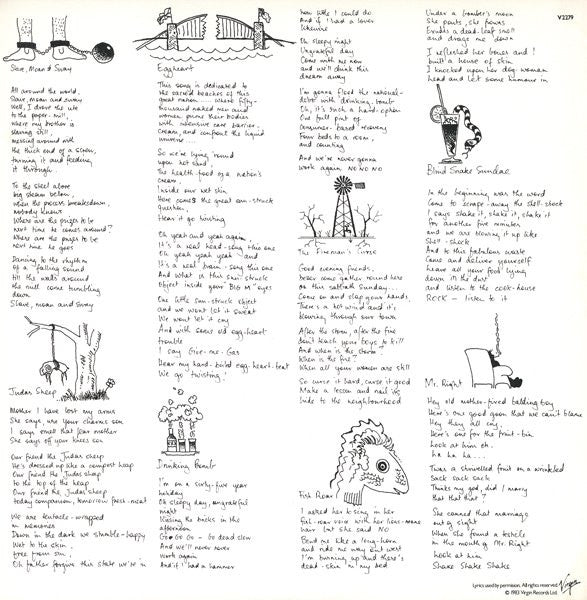 Slave, Moan & Sway
All around the world,
Slave, moan and sway
Well, I drove the ute
to the paper-mill,
where my brother is
slaving still,
messing around with
the thick end of a screw,
turning it and feeding
it through.
To the steel above
big steam below,
when the process breaksdown,
nobody knows
Where are the purges to be
next time he comes around?
Where are the purges to be
next time he goes
Dancing to the rhythm
of a falling sound
till the walls around
the mill come tumbling
down
Slave, moan and Sway
Judas Sheep
Mother I have lost my arms
She says, use your charms son
I says smell that fear mother
She says off your knees son
Our friend the Judas sheep
He's dressed up like a compost heap
Our friend the Judas sheep
to the top of the heap
Our friend the Judas sheep
today companion, tomorrow fresh-meat
We are tentacle-wrapped
in memories
Down in the dark we stumble-happy
Wet to the skin
free from sin
Oh father forgive this state we're in
Eggheart
This song is dedicated to
the sacred beaches of this
great nation..... where fifty-
thousand naked men and
women purge their bodies
with intensive care barrier-
cream, and confront the liquid
universe....
So we're lying 'round
upon hot sand
The health food of a nation's
cream,
Inside our wet skin
Here comes the great sun-struck
question,
Hear it go twisting
Oh yeah and yeah again,
It's a real head-song this one
Oh yeah yeah yeah and
It's a real brain-song this one
And what is this sun struck
object inside your Big M eyes
One little sun-struck object
and we won't let it sweat
We won't let it cry
And with some old egg-heart
trouble
I say Give-me-Gas
Hear my hard-boiled egg-heart-beat
We go 'twisting'
Drinking Bomb
I'm on a sixty-five year
holiday
Oh sleepy day, ungrateful
night
Kissing the bricks in the
afternoon
Go Go Go - Go dead slow
And we'll never never
work again
And if I had a hammer
how little I could do
And if I had a lover
likewise
Oh sleepy night
Ungrateful day
Come with me now
and we'll drink this
dream away
I'm gonna flood the national-
debt with drinking-bomb
Oh, it's such a hard-option
One full pint of
consumer-based
Four beds to a room,
and counting
And we're never gonna
work again NO NO NO
The Fireman's Curse
Good evening friends,
Dear come gather round here
on this saltbush Sunday...
Come on and slap your hands,
There's a hot wind and it's
blowing through our town.
After the storm, after the fire
don't teach your boys to kill
And when is the storm?
When is the fire?
When all your women are still
So curse it hard, curse it good
Make a lesson and nail it
Inside to the neighbourhood
Fish Roar
I asked her to sing in her
fish-roar voice with her lion's-mane
hair but she said NO
Bend me like a long-horn
and ride me way out west
I'm burning up and there's
dead-skin in my bed
Under a bomber's moon
She pants, she paws
Exhales a dead-leaf smell
and drags me down
I refleshed her bones and I
built a house of skin
I knocked upon her dog-woman
head and let some humour in
Blind Snake Sundae
In the beginning was the word
Come to scrape-away the shell-shock
I says shake it, shake it, shake it
for another five minutes
and we are blowing it up like
Shell-shock
And to this fabulous waste
Come and deliver yourself
leave all your food lying
down in the dust
and listen to the cook-house
ROCK - listen to it
Mr. Right
Hey old mother-fixed balding boy
Here's one good goon that we can't blame
Hey they all cry,
Here's one for the fruit-bin
look at him oh.
ha ha ha....
Twas a shrivelled fruit on a wrinkled
sack sack sack
Thinks my god did I marry
that that that?
She scanned that marriage
out of sight
When she found a
in the mouth of Mr. Right
Look at him
Shake Shake Shake.
V2279
Lyrics used by permission. All rights reserved
© 1983 Virgin Records Ltd.
Virgin